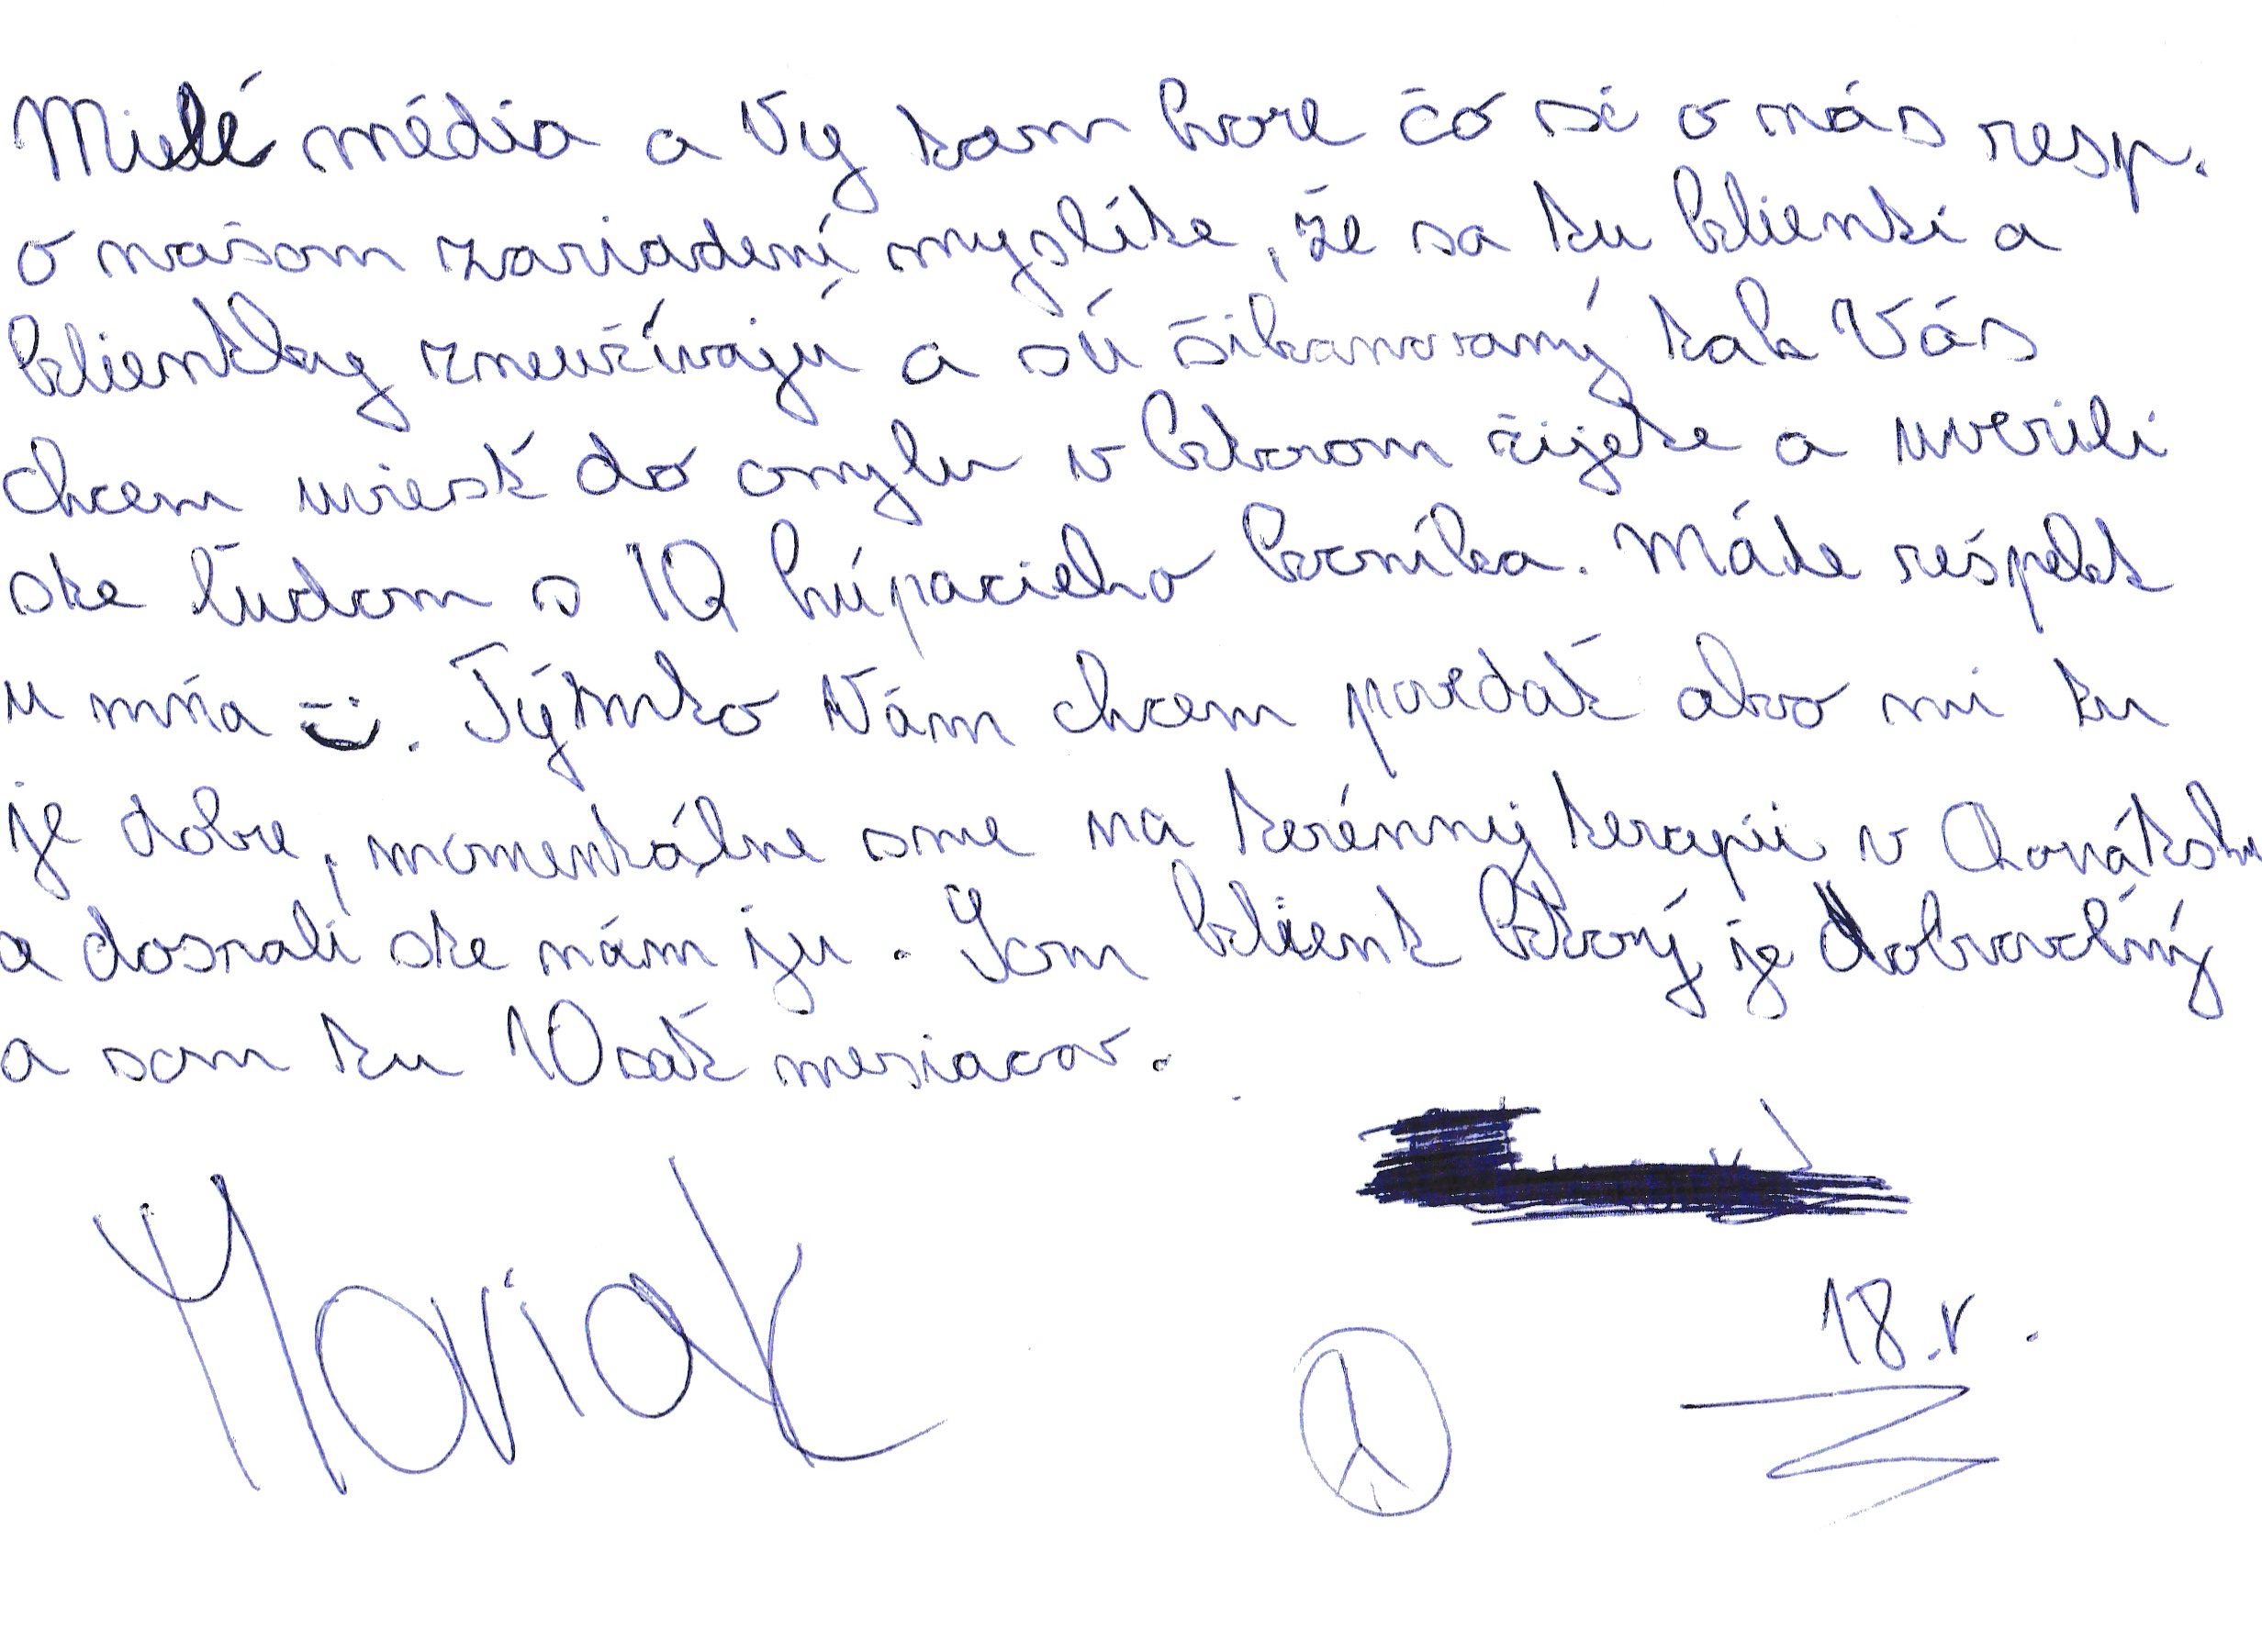 Milé média a Vy tam hore čo si o nás resp.
o našom zariadení myslíte, že sa tu klienti a
klientky zneužívajú a sú šikanovaný tak Vás
chcem uviesť do omylu v ktorom žijete a uverili
ste ľuďom s IQ húpacieho koníka. Máte rešpekt
u mňa :). Týmto Vám chcem povedať ako mi tu
je dobre, momentálne sme na terénnej terapii v Chorvátsku
a dosrali ste nám ju. Som klient ktorý je dobrovolný
a som tu 10sať mesiacov.
18.r.